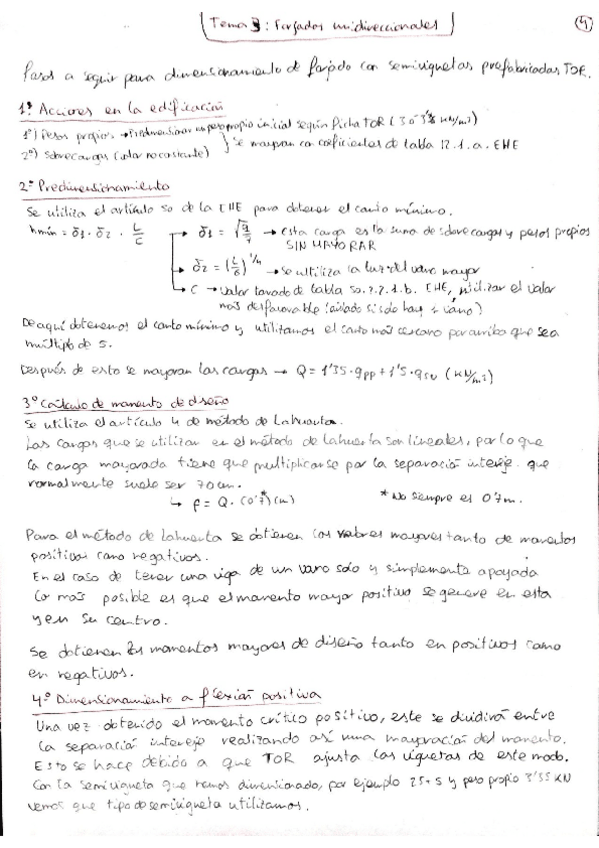 Tema 3: Forjados unidireccionales
4
Pasos a seguir para dimensionamiento de forjado con semiviguetas prefabricadas TOR.
1º Acciones en la edificación
1º) Pesos propios → Predimensionar un peso propio inicial según Ficha TOR (3 o 3'5 kN/m²)
2º) Sobrecargas (valor no constante) } Se mayoran con coeficientes de tabla 12.1.a. EHE
2º Predimensionamiento
Se utiliza el artículo 50 de la EHE para obtener el canto mínimo.
hmin = δ1 · δ2 · L/C → δ1 = √q/7 → esta carga es la suma de sobrecargas y pesos propios
SIN MAYORAR
→ δ2 = (L/6)^1/4 → se utiliza la luz del vano mayor
→ C → valor tavado de tabla 50.2.2.1.b. EHE, utilizar el valor
más desfavorable (aislado si solo hay 1 vano)
De aquí obtenemos el canto mínimo y utilizamos el canto más cercano por arriba que sea
múltiplo de 5.
Después de esto se mayoran las cargas → Q = 1'35 · gpp + 1'5 · qsu (kN/m²)
3º Cálculo de momento de diseño
Se utiliza el artículo 4 de método de Lahuerta.
Las cargas que se utilizan en el método de Lahuerta son lineales, por lo que
la carga mayorada tiene que multiplicarse por la separación intereje que
normalmente suele ser 70 cm.
↳ p = Q · (0'7*) (m) * No siempre es 0'7 m.
Para el método de Lahuerta se obtienen los valores mayores tanto de momentos
positivos como negativos.
En el caso de tener una viga de un vano solo y simplemente apoyada
lo más posible es que el momento mayor positivo se genere en esta
y en su centro.
Se obtienen los momentos mayores de diseño tanto en positivos como
en negativos.
4º Dimensionamiento a flexión positiva
Una vez obtenido el momento crítico positivo, este se dividirá entre
la separación intereje realizando así una mayoración del momento.
Esto se hace debido a que TOR ajusta las viguetas de este modo.
Con la semivigueta que hemos dimensionado, por ejemplo 25+5 y peso propio 3'35 KN
vemos que tipo de semivigueta utilizamos.